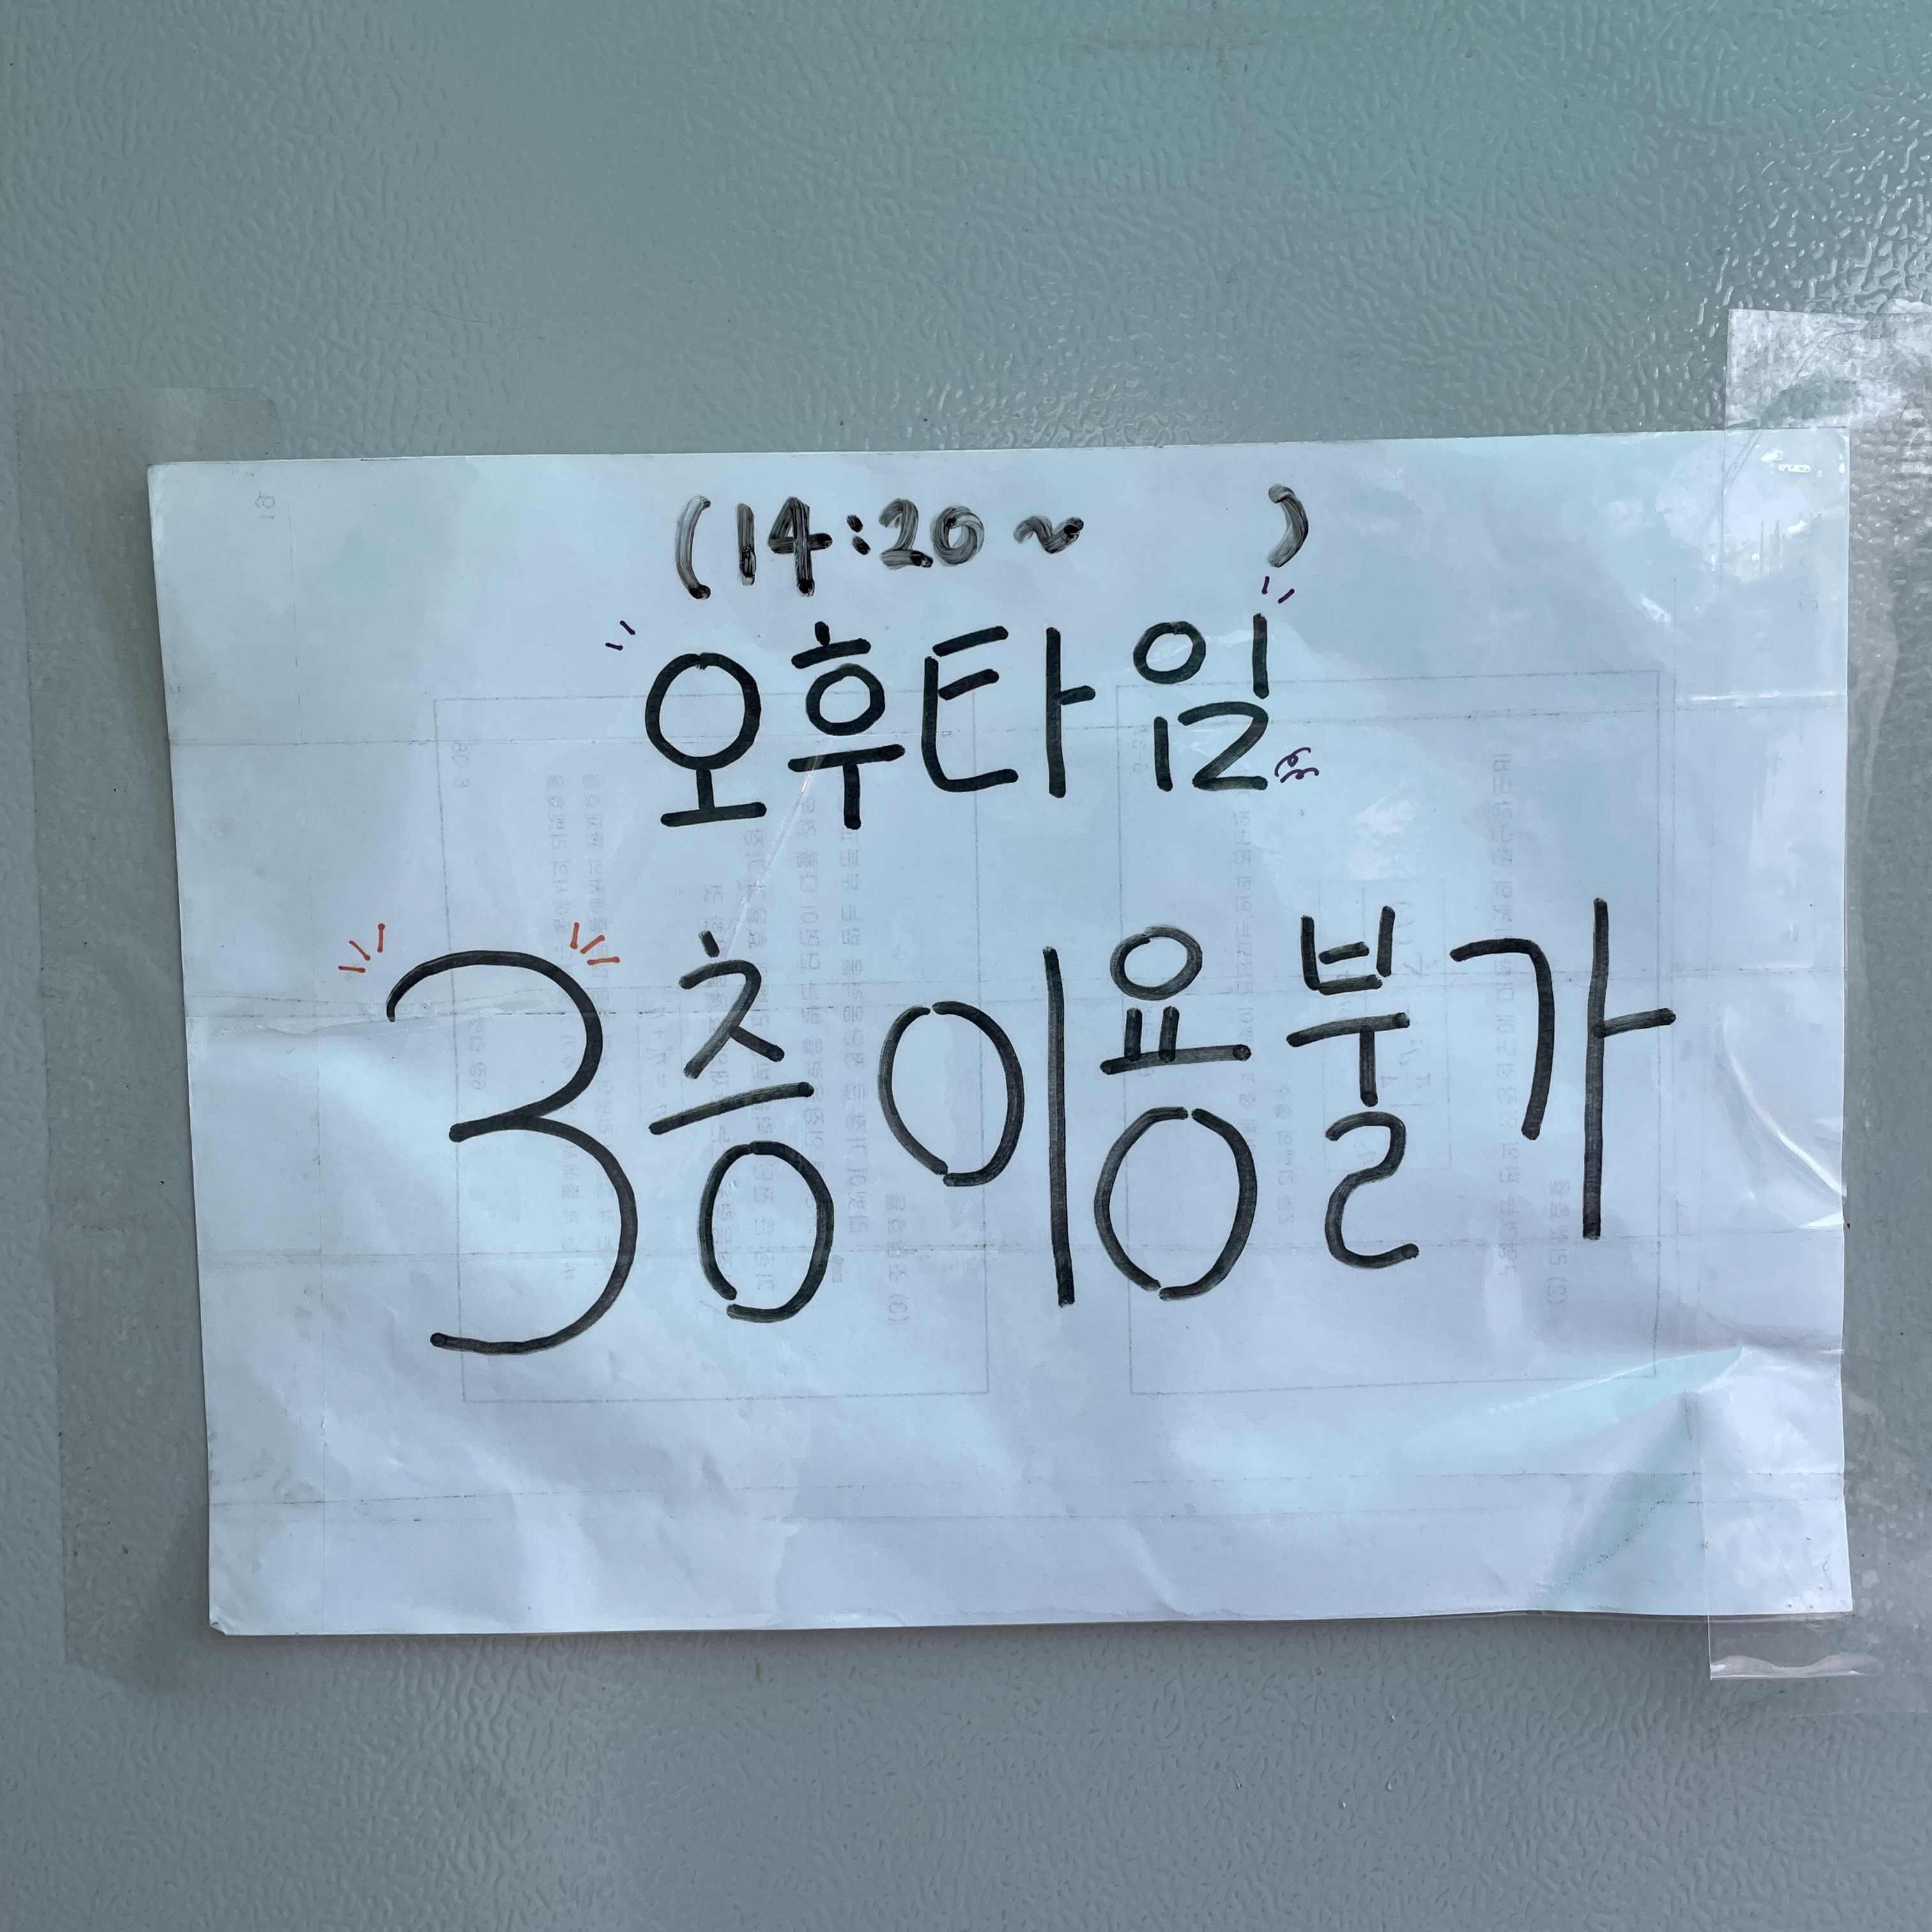 (14:20~ )
오후타임
3층 이용불가